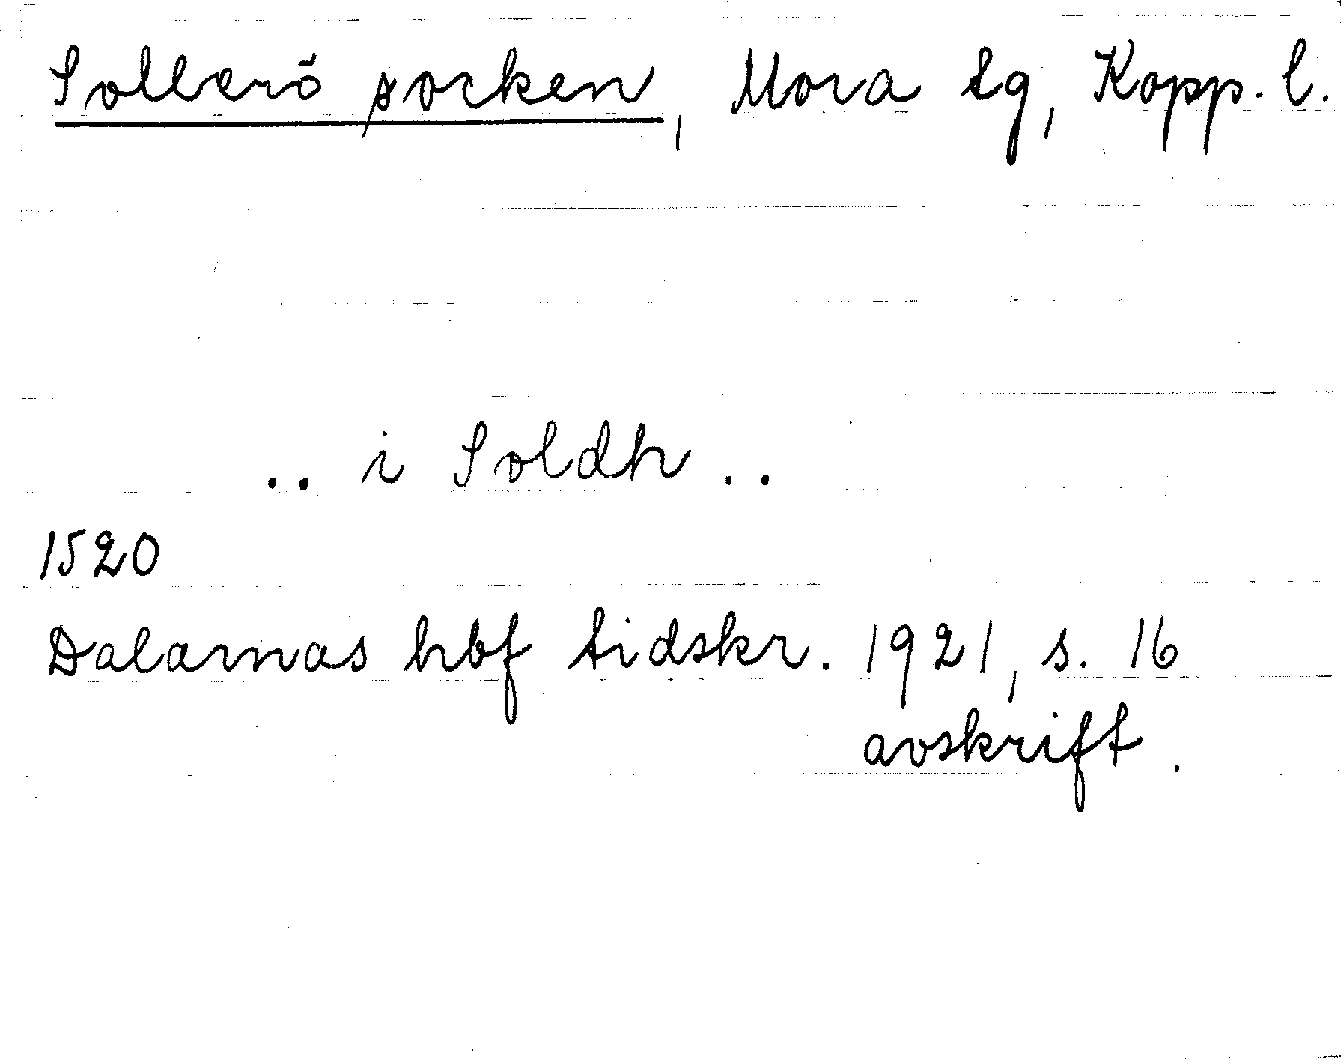 Sollerö socken, Mora tg, Kopp. l.
.. i Soldh ..
1520
Dalarnas hbf tidskr. 1921, s. 16
avskrift.